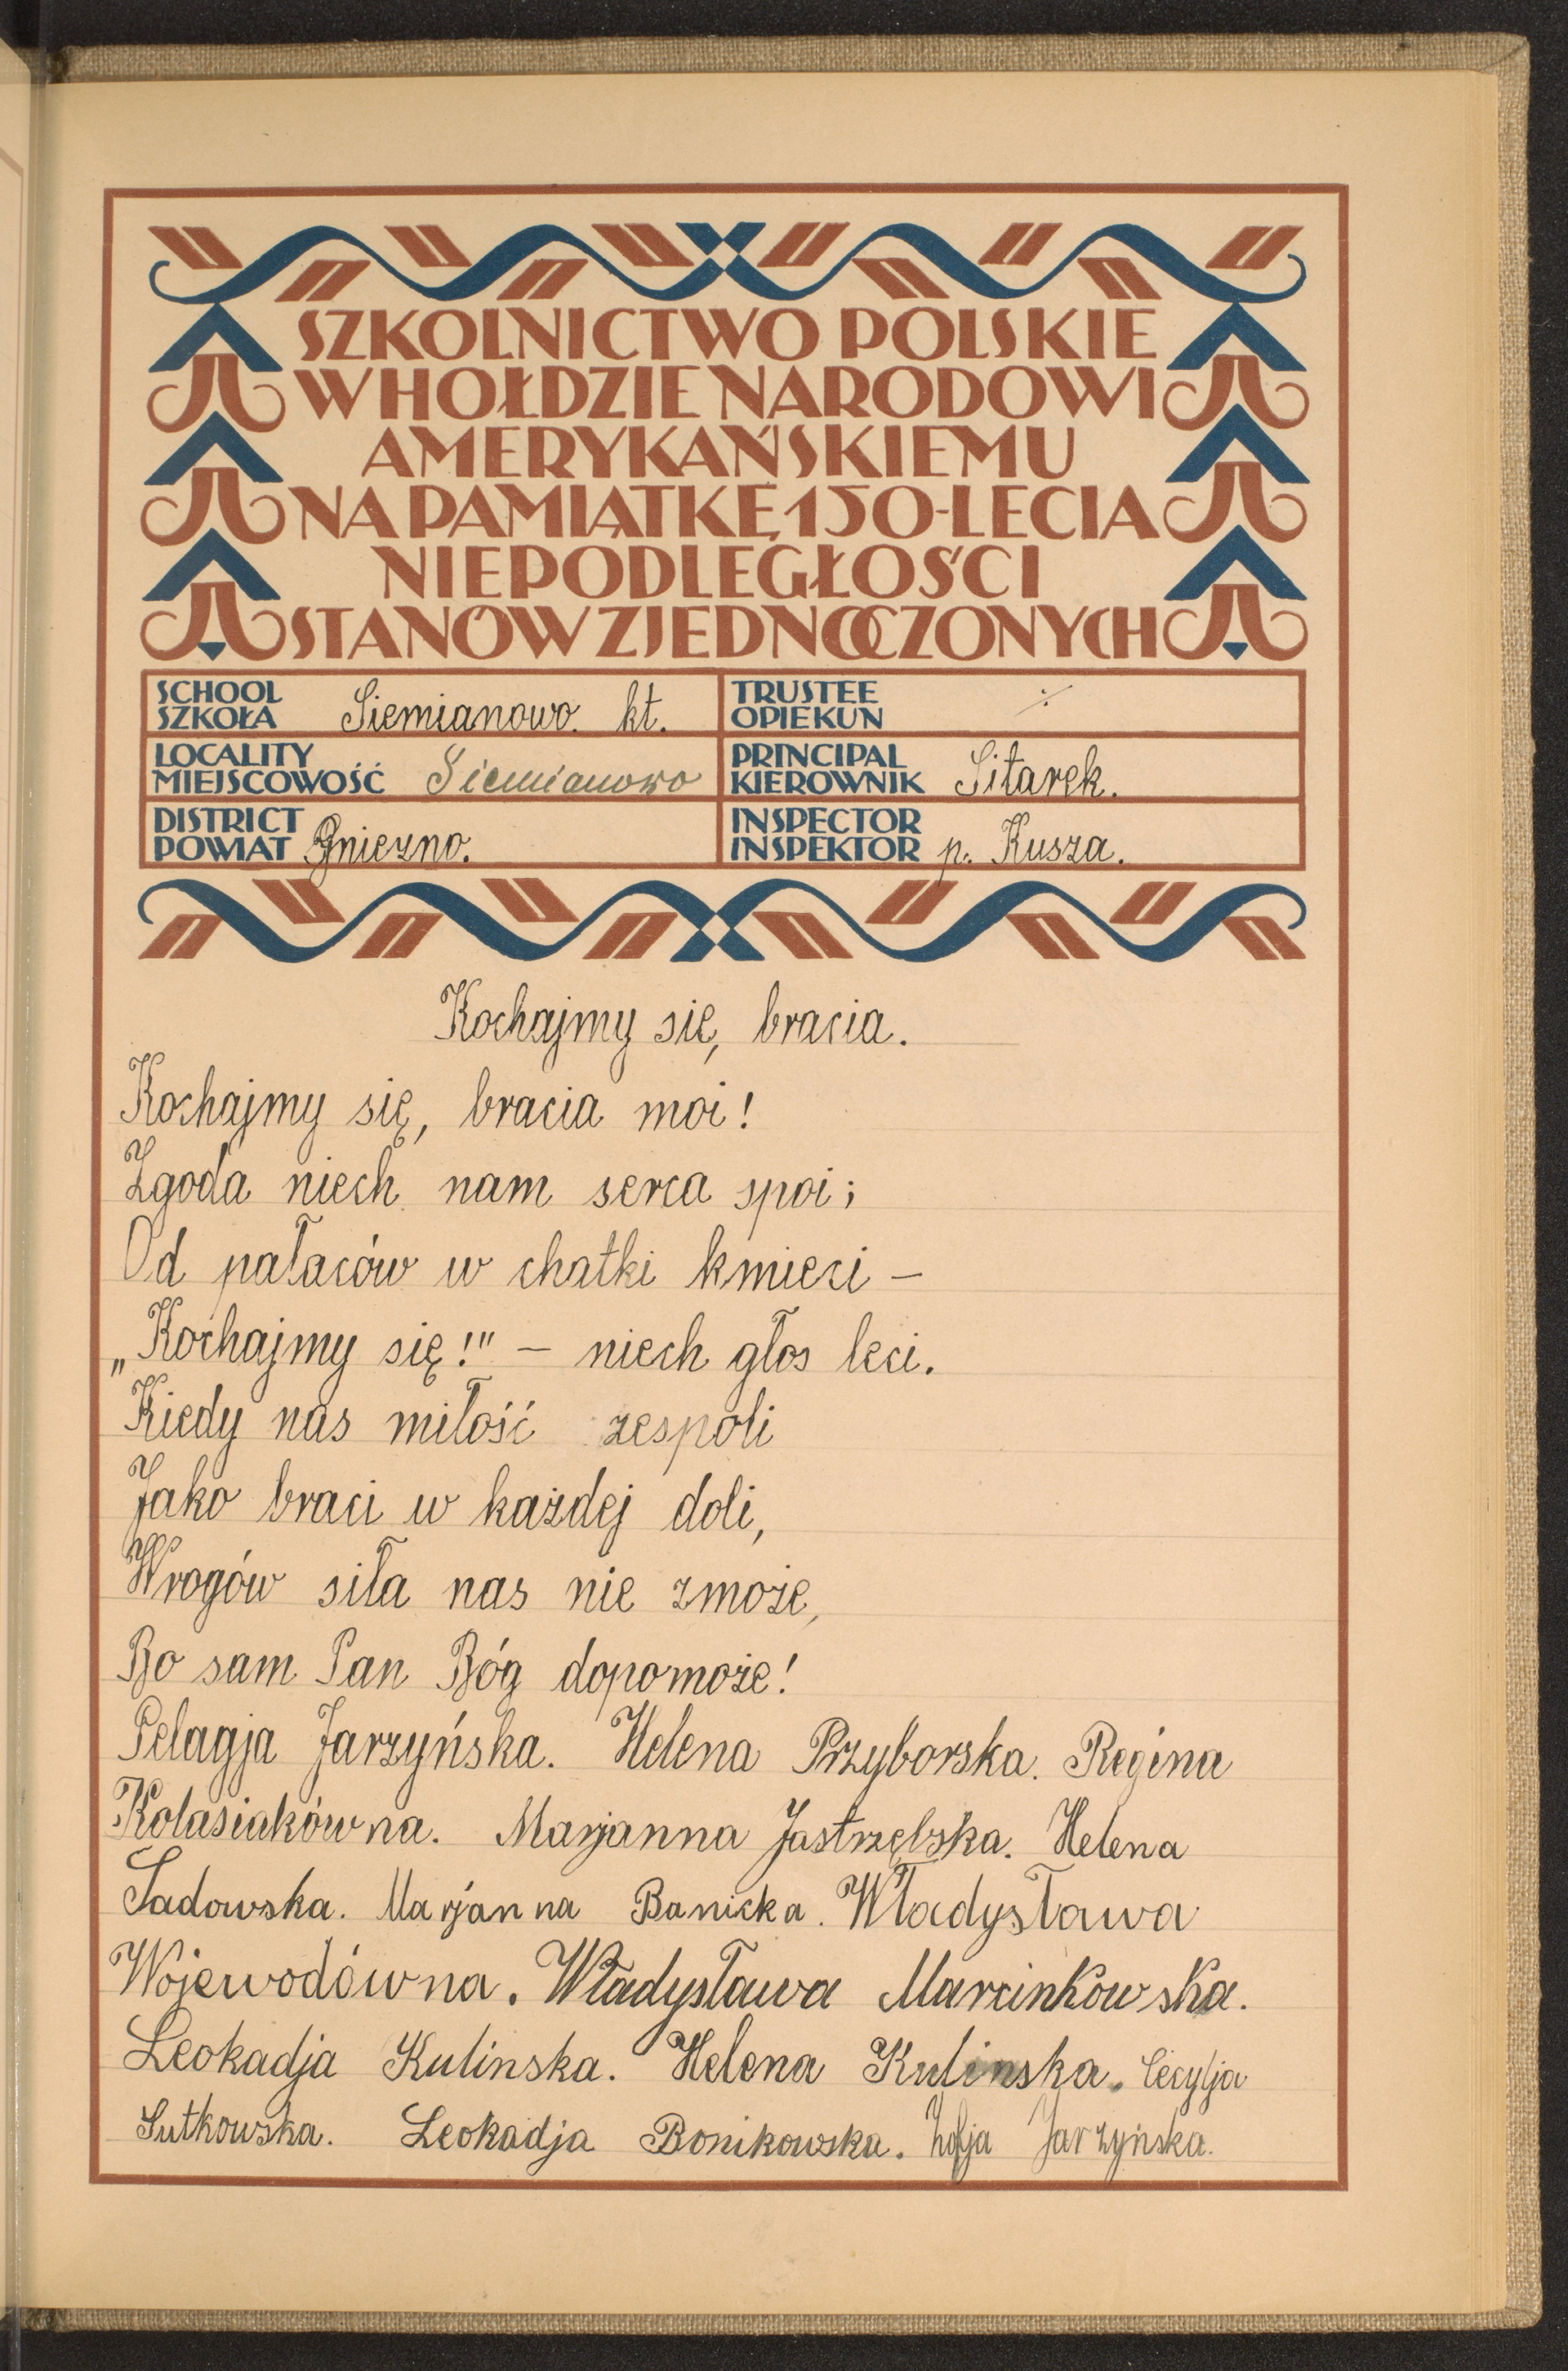 SZKOLNICTWO POLSKIE
W HOŁDZIE NARODOWI
AMERYKAŃSKIEMU
NA PAMIĄTKĘ 150-LECIA
NIEPODLEGŁOŚCI
STANÓW ZJEDNOCZONYCH
SCHOOL
SZKOŁA Siemianowo. kt.
TRUSTEE
OPIEKUN ·/·
LOCALITY
MIEJSCOWOŚĆ Siemianowo
PRINCIPAL
KIEROWNIK Sitarek.
DISTRICT
POWIAT Gniezno.
INSPECTOR
INSPEKTOR p. Kusza.
Kochajmy się, bracia.
Kochajmy się, bracia moi!
Zgoda niech nam serca spoi;
Od pałaców w chatki kmieci –
„Kochajmy się!" – niech głos leci.
Kiedy nas miłość zespoli
Jako braci w każdej doli,
Wrogów siła nas nie zmoże,
Bo sam Pan Bóg dopomoże!
Pelagja Jarzyńska. Helena Przyborska. Regina
Kolasiakówna. Marjanna Jastrzębska. Helena
Sadowska. Marjanna Banicka. Władysława
Wojewodówna. Władysława Marcinkowska.
Leokadja Kulinska. Helena Kulinska. Cecylja
Sutkowska. Leokadja Bonikowska. Zofja Jarzyńska.